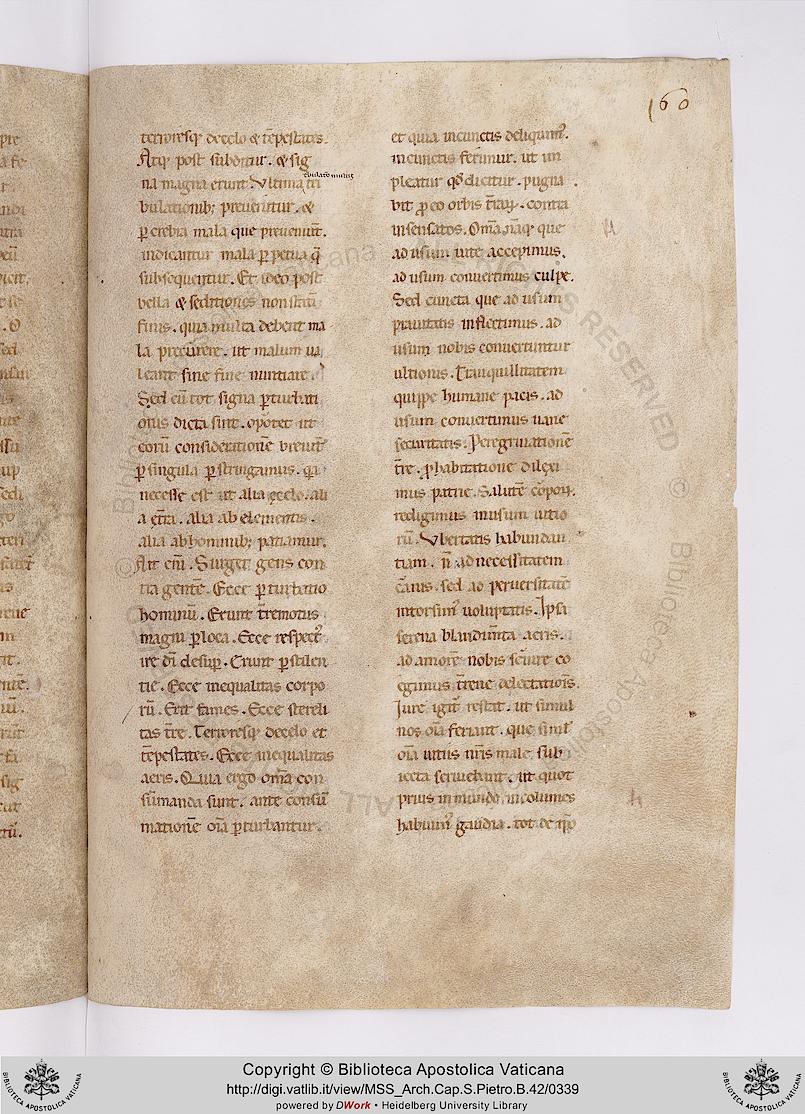 160
terroresq; de celo & tēpestates.
Atq; post subditur. & sig
na magna erunt. Ultima tri
bulationib; preuenitur. &
p̄ crebra mala que preueniunt.
indicantur mala p̄petua q̄
subsequentur. Et ideo post
bella & seditiones non statī
finis. quia multa debent ma
la precurrere. ut malum ua
leant sine fine nuntiare.
Sed cū tot signa p̄turbati
onis dicta sint. oportet ut
eorū considerationē breuit̄
p̄ singula p̄stringamus. q̄a
necesse est ut alia e celo. ali
a e t̄ra. alia ab elementis.
alia ab hominib; patiamur.
Ait eni̅. Surget gens con
tra gentē. Ecce p̄turbatio
hominū. Erunt t̄remotus
magni p̄ loca. Ecce respect̕
ire dī desup̄. Erunt pestilen
tie. Ecce inequalitas corpo
rū. Erit fames. Ecce stereli
tas t̄re. Terroresq; de celo et
tēpestates. Ecce inequalitas
aeris. Quia ergo om̄a con
sūmanda sunt. ante consū
mationē oīa p̄turbantur.
et quia in cunctis deliquim̕.
in cunctis ferimur. ut im
pleatur qd̄ dicitur. pugna
bit p̄ eo orbis t̄rarꝝ. contra
insensatos. Om̄a naq̄ que
ad usum uite accepimus.
ad usum conuertimus culpe.
Sed cuncta que ad usum
prauitatis inflectimus. ad
usum nobis conuertuntur
ultionis. Tranquillitatem
quippe humane pacis. ad
usum conuertimus uane
securitatis. Peregrinationē
t̄re. p̄ habitatione dilexi
mus patrie. Salutē corpoꝝ.
redigimus in usum uitio
rū. Ubertatis habundan
tiam. n̄ ad necessitatem
carnis. sed ad peruersitatē
intorsim̕ uoluptatis. Ipsa
serena blandim̄ta aeris.
ad amorē nobis seruire co
egimus t̄rene delectationis.
Iure igit̄ restat. ut simul
nos oīa feriant. que simul
oīa uitiis nr̄is male sub
iecta seruiebant. ut quot
prius in mundo incolumes
habuim̕ gaudia. tot de ip̄o
Copyright © Biblioteca Apostolica Vaticana
http://digi.vatlib.it/view/MSS_Arch.Cap.S.Pietro.B.42/0339
powered by DWork • Heidelberg University Library